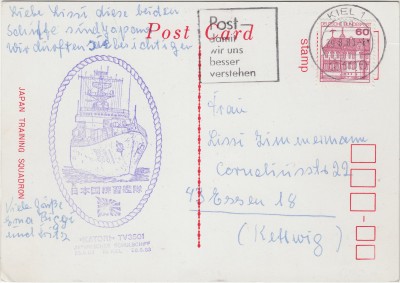 Liebe Lissi diese beiden
Schiffe sind Japaner
Wir durften sie besichtigen
Post Card
Post–
damit
wir uns
besser
verstehen
KIEL 1
60
stamp
JAPAN TRAINING SQUADRON
日本国練習艦隊
Viele Grüße
und Fritz
KATORI TV3501
Frau
Lissi Zimmermann
Corneliusstr 22
43 Essen 18
(Kettwig)